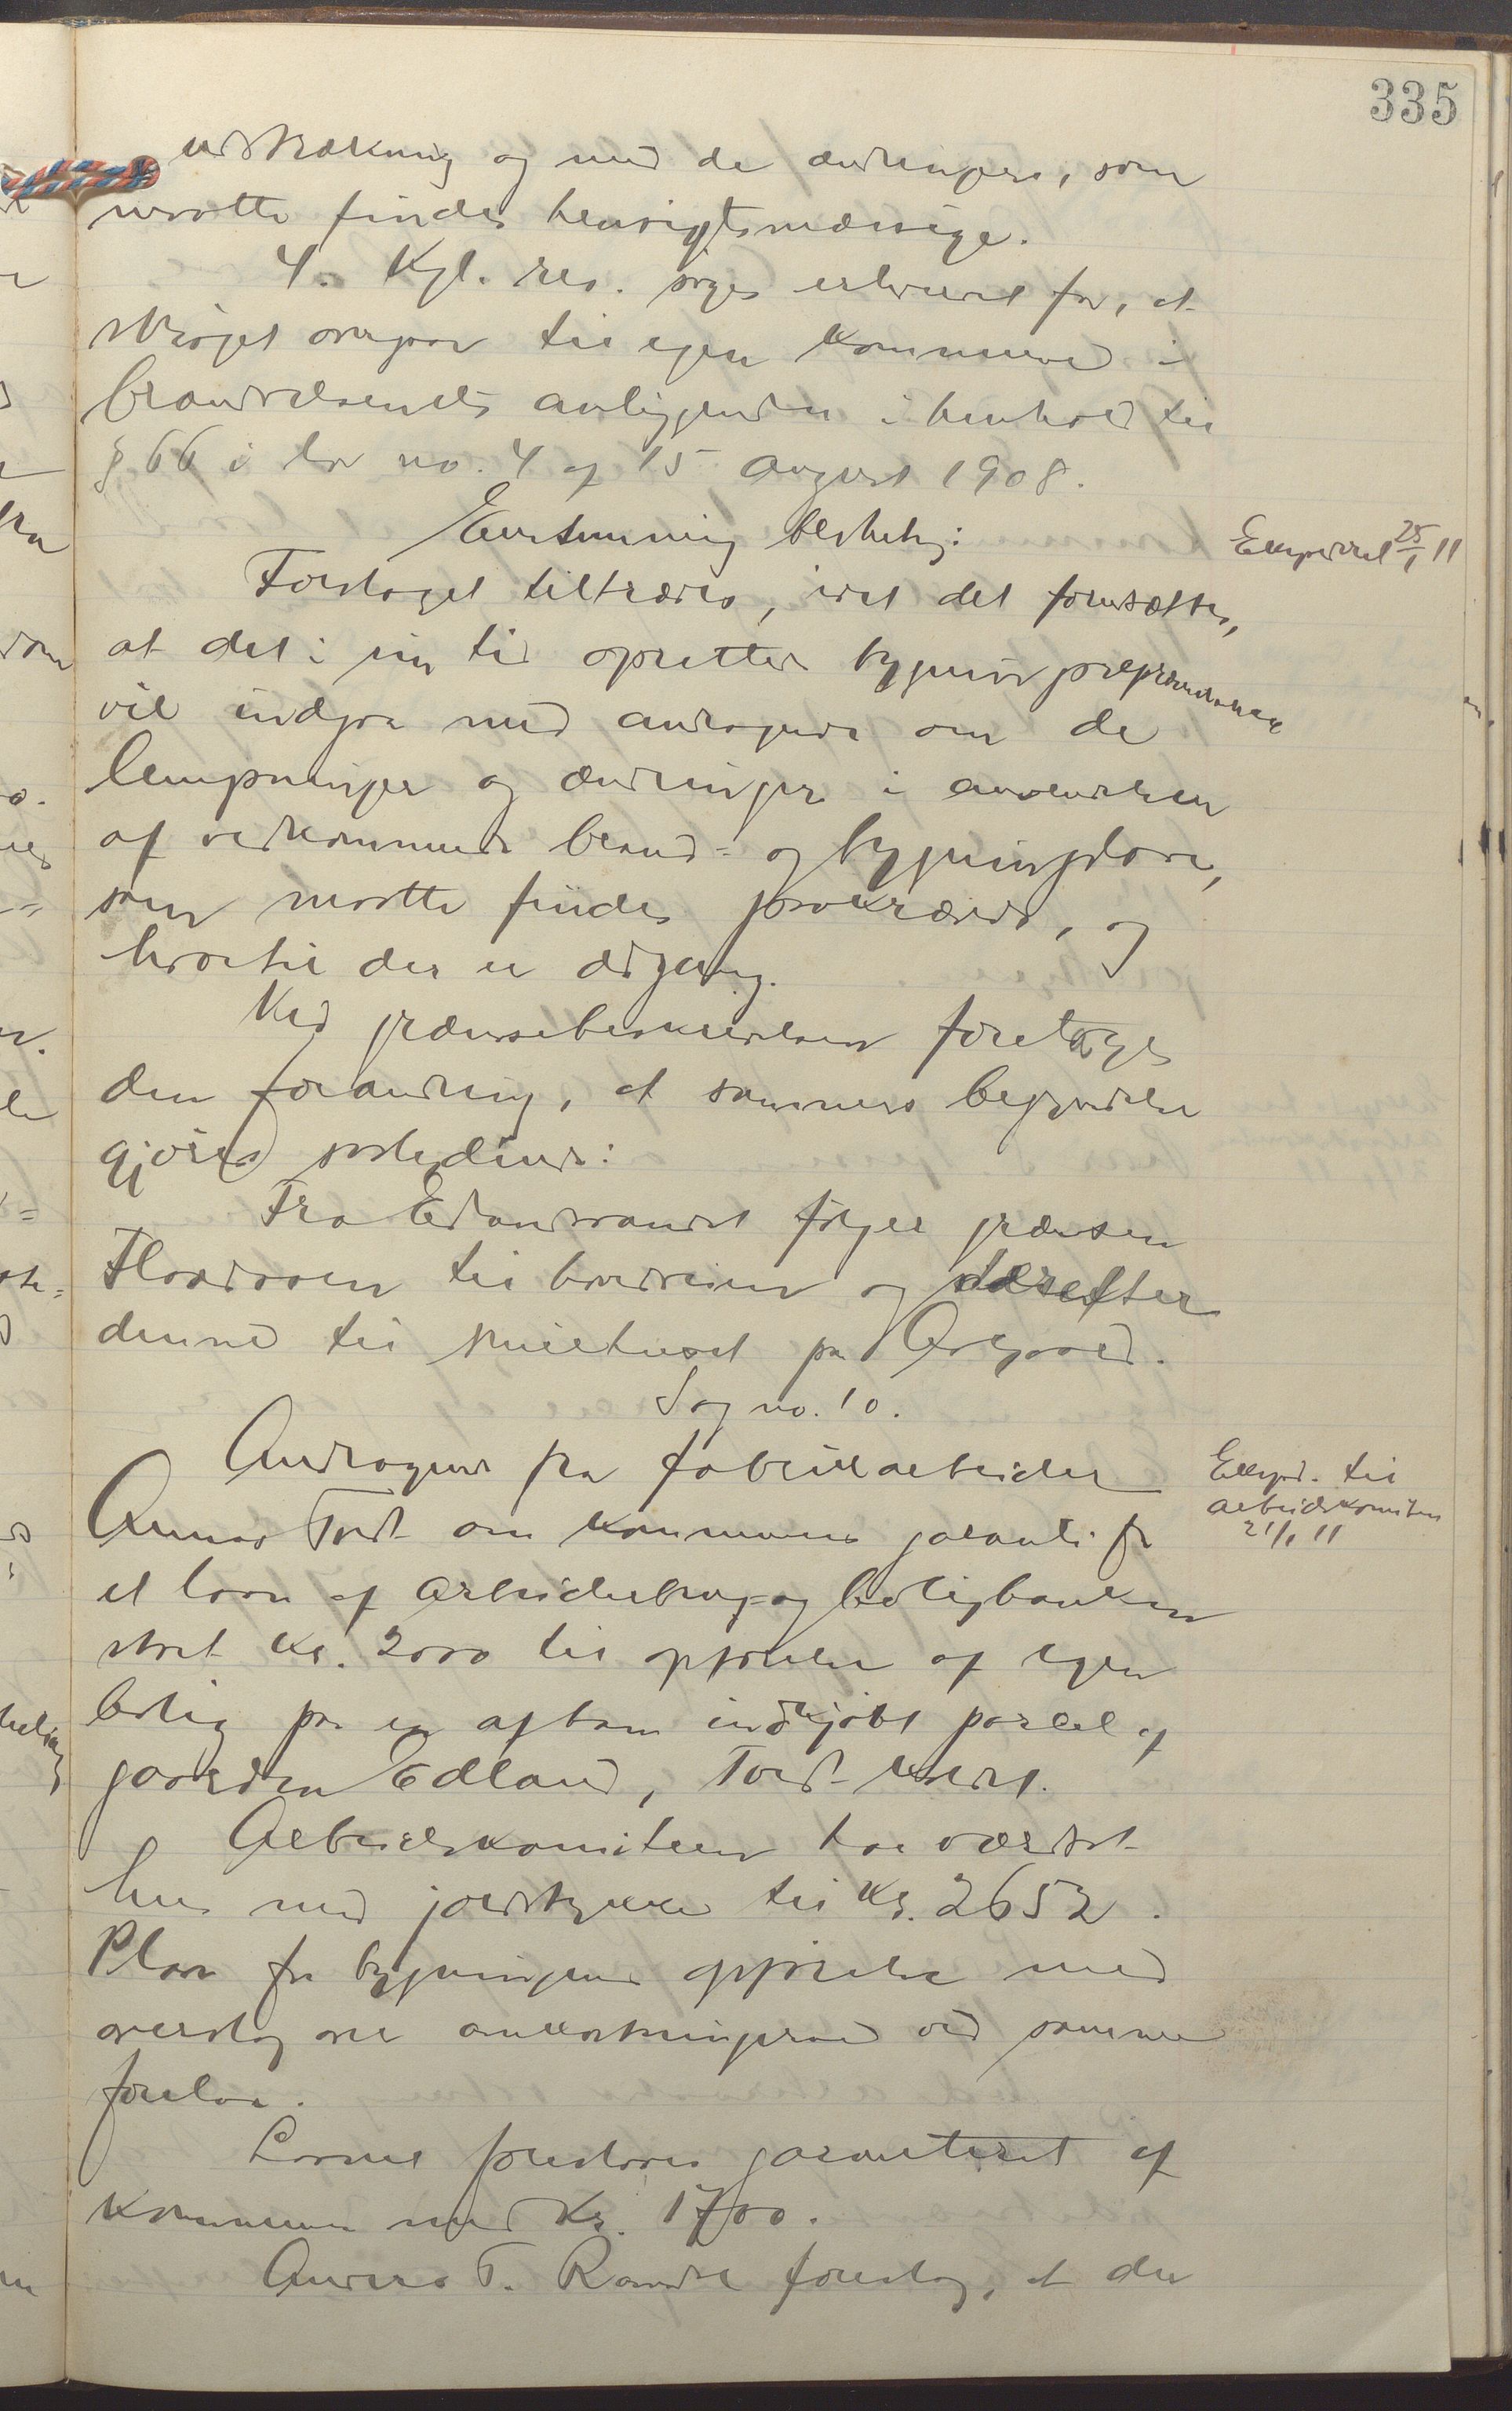 335
udstrækning og med de ændringer, som
maatte findes hensigtsmæssige.
4. Kgl. res. søges erhvervet for, at
strøget overgaar til egen kommune i
brandvæsenets anliggender i henhold til
§ 66 i lov no. 4 af 15 august 1908.
Enstemmig beslutn:
Expederet 25/1 11
Forslaget tiltrædes, idet det forudsættes,
at det i sin tid oprettede bygningsrepræsentskab
vil indgaa med andragende om de
lempninger og ændringer i anvendelsen
af vedkommende brand- og bygningslove,
som maatte findes paakrævede, og
hvortil der er adgang.
Ved grænsebeskrivelsen foretages
den forandring, at sammes begyndelse
gjøres saalydende:
Fra Edlandsvandet følger grænsen
Flaadaaen til hovedveien og derefter
denne til skillehuset paa Aalgaard.
Sag no. 10.
Andragende fra fabrikarbeider
Expd. til
arbeidskomiteen
21/1 11
Gunnar Tord om kommunens garanti for
et laan af Arbeiderbrug- og boligbanken
stort kr. 2000 til opførelse af egen
bolig paa en af ham indkjøbt parcel af
gaarden Edland, Tord-
Arbeidskomiteen har værdsat
hus med jordstykke til Kr. 2652.
Plan for bygningens opførelse med
overslag over omkostningerne ved samme
forelaa.
Laanet foreslaaes garanteret af
kommunen med Kr. 1700.
Anders T. Ravndal foreslog, at der